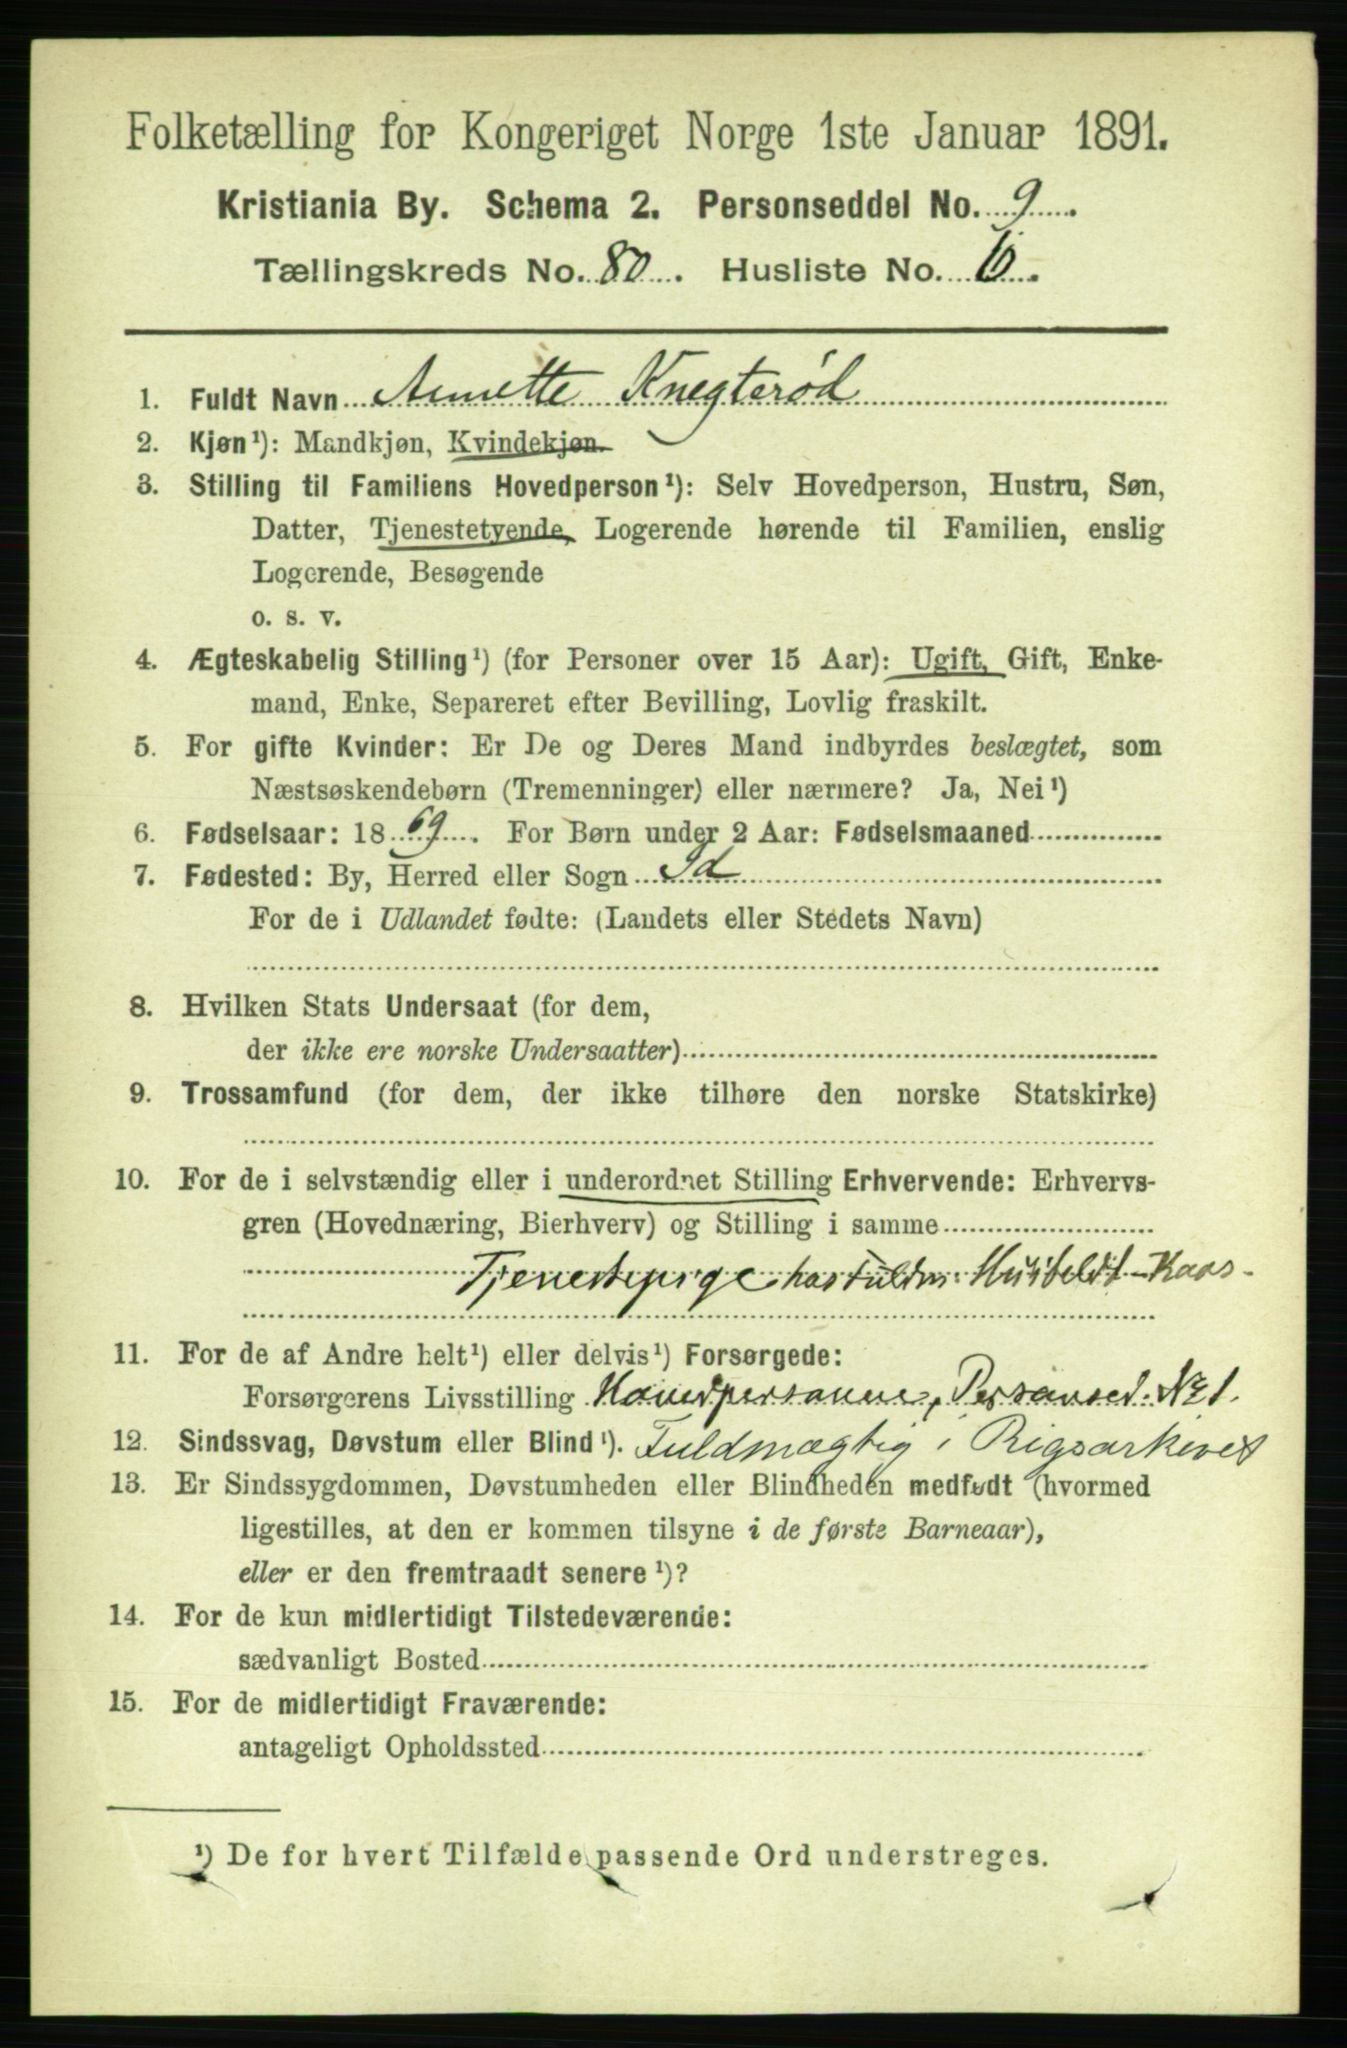 Folketælling for Kongeriget Norge 1ste Januar 1891.
Kristiania By. Schema 2. Personseddel No. 9
Tællingskreds No. 80. Husliste No. 6.
1. Fuldt Navn Annette Knegterød
2. Kjøn¹): Mandkjøn, Kvindekjøn.
3. Stilling til Familiens Hovedperson¹): Selv Hovedperson, Hustru, Søn,
Datter, Tjenestetyende, Logerende hørende til Familien, enslig
Logerende, Besøgende
o. s. v.
4. Ægteskabelig Stilling¹) (for Personer over 15 Aar): Ugift, Gift, Enke-
mand, Enke, Separeret efter Bevilling, Lovlig fraskilt.
5. For gifte Kvinder: Er De og Deres Mand indbyrdes beslægtet, som
Næstsøskendebørn (Tremenninger) eller nærmere? Ja, Nei¹)
6. Fødselsaar: 1869. For Børn under 2 Aar: Fødselsmaaned
7. Fødested: By, Herred eller Sogn Id
For de i Udlandet fødte: (Landets eller Stedets Navn)
8. Hvilken Stats Undersaat (for dem,
der ikke ere norske Undersaatter)
9. Trossamfund (for dem, der ikke tilhøre den norske Statskirke)
10. For de i selvstændig eller i underordnet Stilling Erhvervende: Erhvervs-
gren (Hovednæring, Bierhverv) og Stilling i samme
Tjenestepige hos Fuldm: Huitfeldt-Kaas-
11. For de af Andre helt¹) eller delvis¹) Forsørgede:
Forsørgerens Livsstilling Hovedpersonne, Personsed. No 1.
12. Sindssvag, Døvstum eller Blind¹). Fuldmægtig i Rigsarkivet
13. Er Sindssygdommen, Døvstumheden eller Blindheden medfødt (hvormed
ligestilles, at den er kommen tilsyne i de første Barneaar),
eller er den fremtraadt senere¹)?
14. For de kun midlertidigt Tilstedeværende:
sædvanligt Bosted
15. For de midlertidigt Fraværende:
antageligt Opholdssted
¹) De for hvert Tilfælde passende Ord understreges.